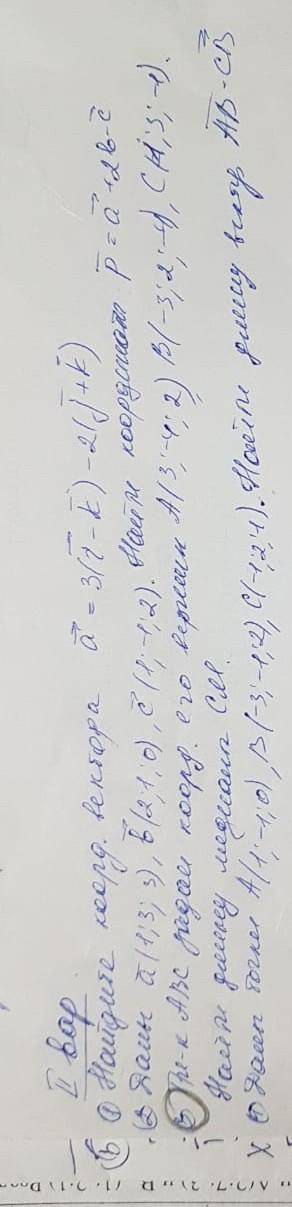 II вар
① Найдите коорд. вектора a = 3(i - k) - 2(j + k)
② Даны a(1; 3; 3), b(2; 1; 0), c(1; -1; 2). Найти координаты p = a + 2b - c
③ Тр-к ABC задан коорд. его вершин A(3; -4; 2) B(-3; 2; -4), C(1; 3; -1).
Найти длину медианы CM.
④ Даны точки A(1; -1; 0), B(-3; -1; 2), C(-1; 2; 1). Найти длину вектор AB - CB